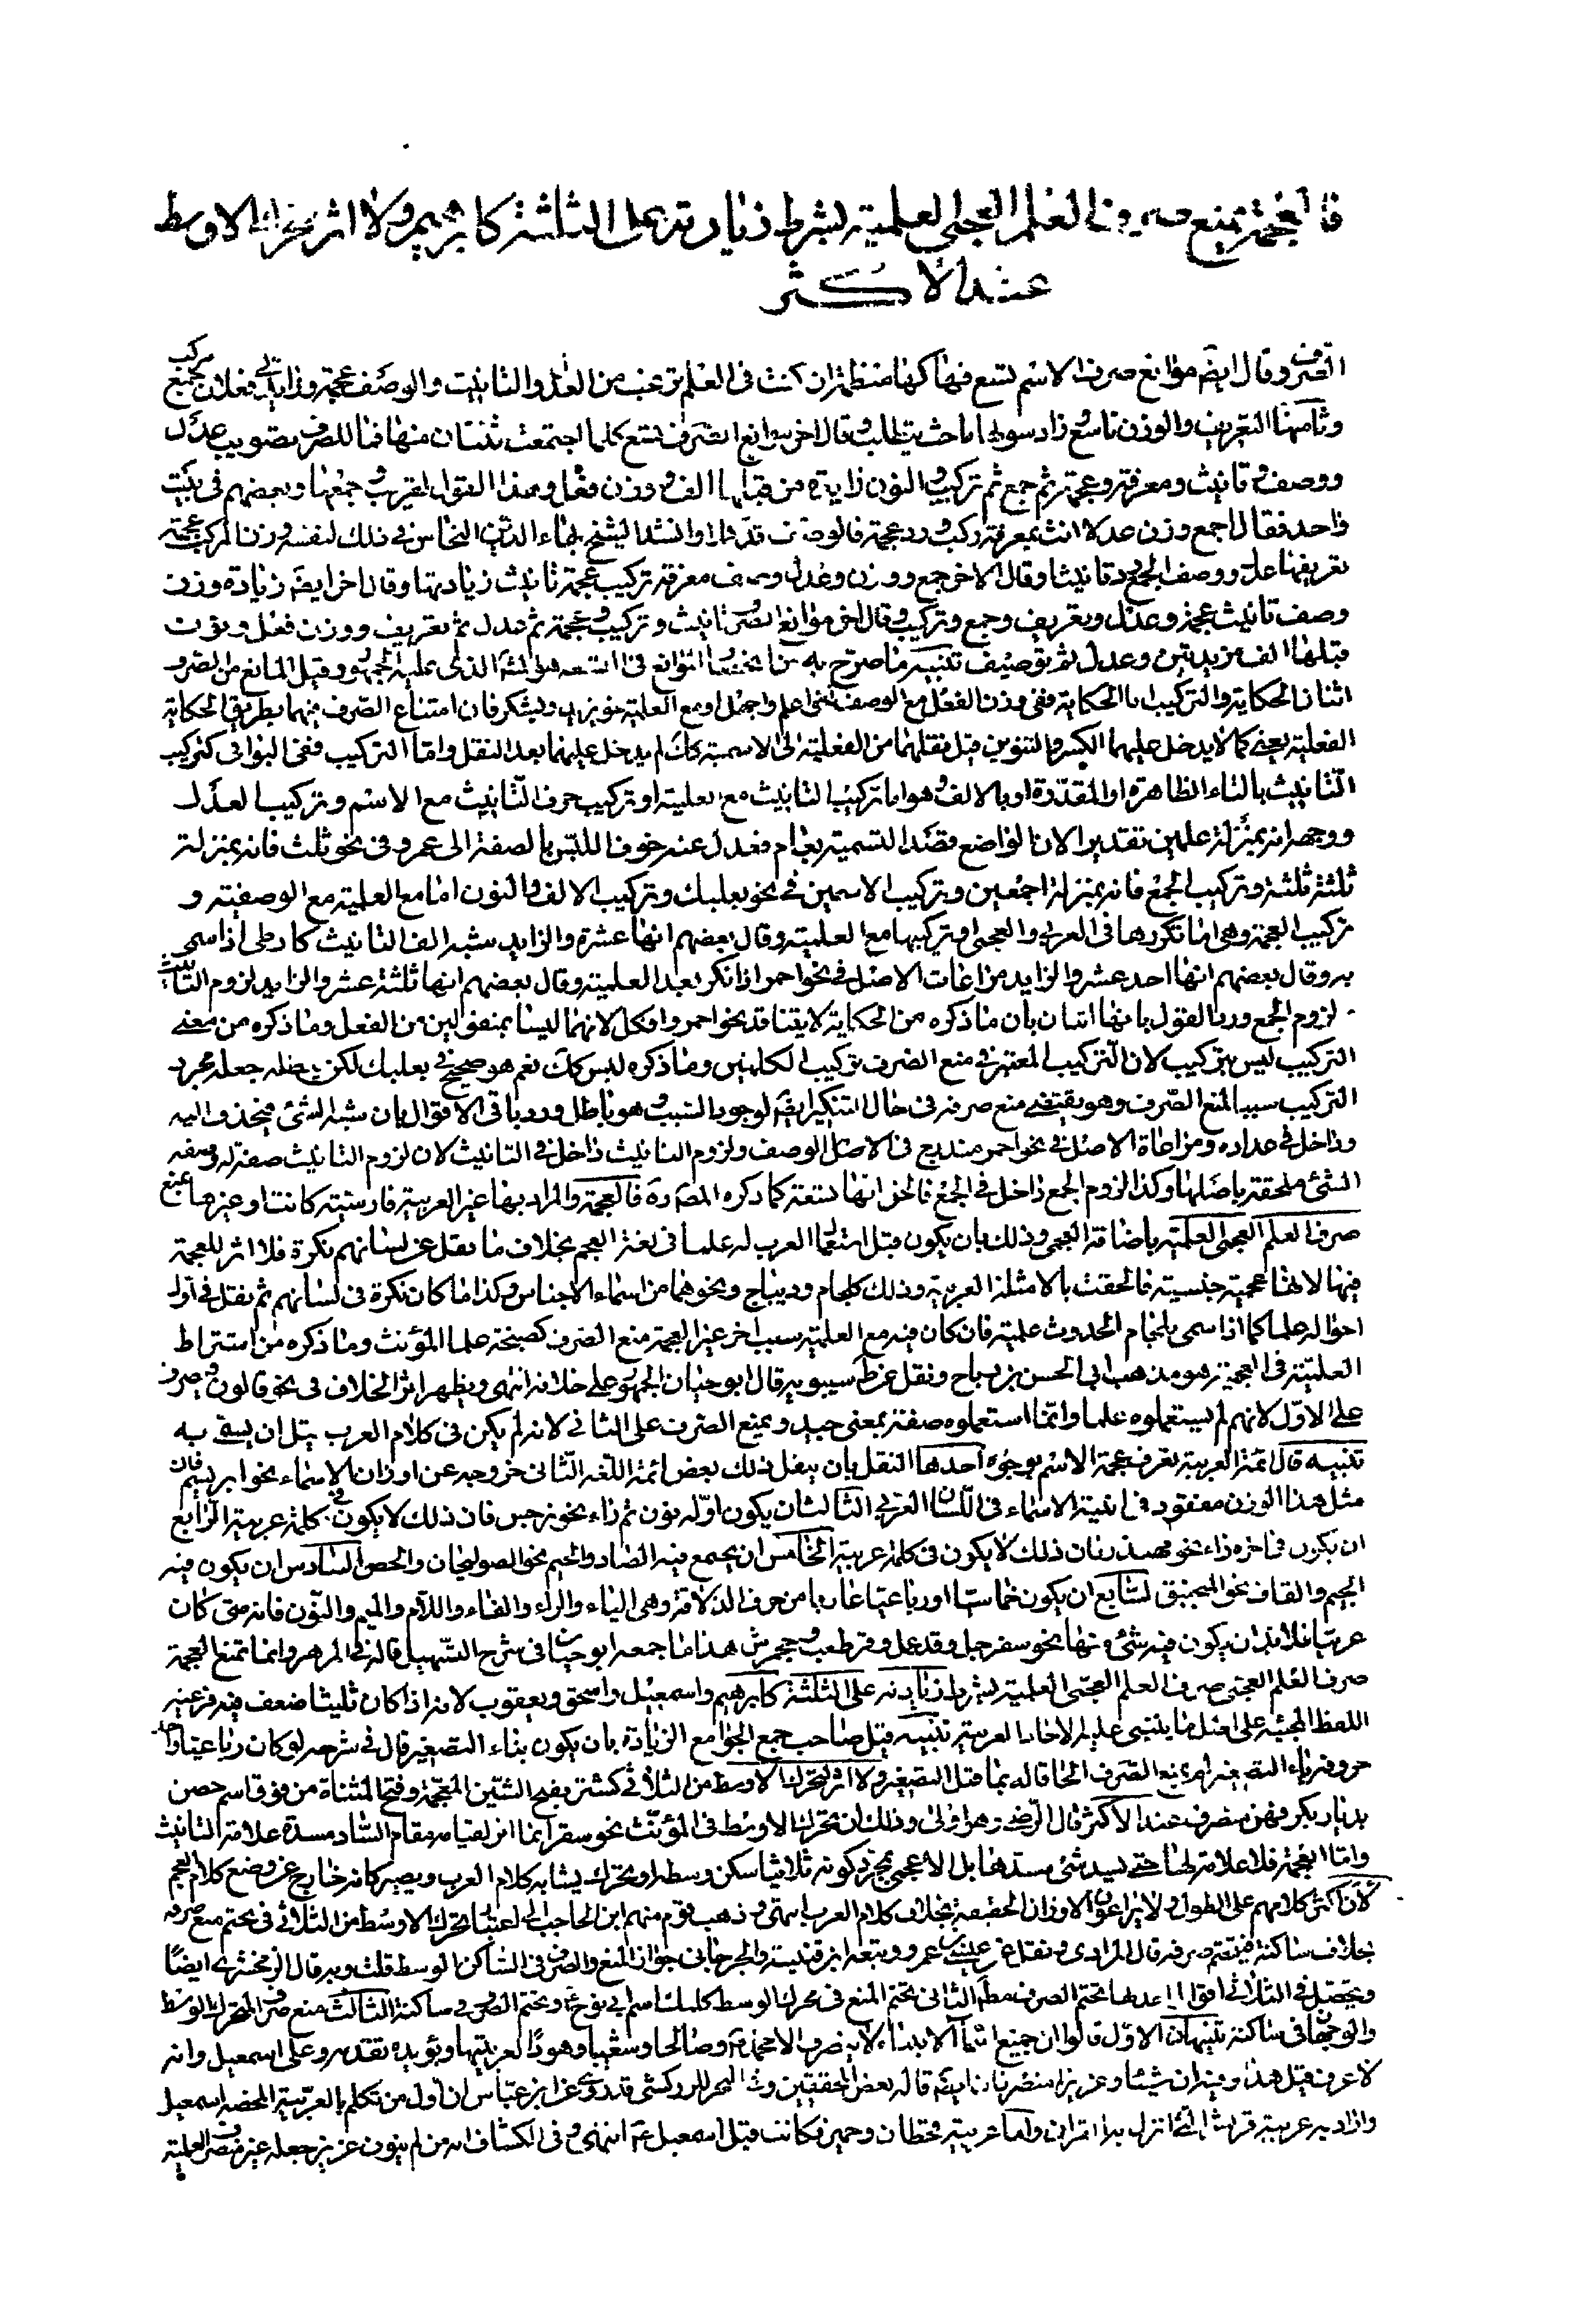 فالعجمة تمنع صرف العلم العجمي العلمية بشرط زيادته على الثلثة كابرهيم ولا اثر لتحرك الاوسط
عند الاكثر
الصرف وقال ايضا موانع صرف الاسم تسع فهاكها منظمة ان كنت في العلم ترغب من العدل والتانيث والوصف عجمة وزايدي فعلان جمع مركب
وثامنها التعريف والوزن تاسع وقال اخر موانع الصرف تسع كلما اجتمعت ثنتان منها فما للصرف تصويب عدل
ووصف وتانيث ومعرفة وعجمة ثم جمع ثم تركيب والنون زايدة من قبلها الف ووزن فعل وهذا القول تقريب وجمعها بعضهم في بيت
واحد فقال اجمع وزن عدلا انث بمعرفة ركب وزد عجمة فالوصف قد كملا وانشد الشيخ بهاء الدين النحاس في ذلك لنفسه وزن المركب عجمة
تعريفها عدل ووصف الجمع زد تانيثا وقال الاخر جمع ووزن وعدل وصف معرفة تركيب عجمة تانيث زيادتها وقال اخر ايضا زيادة وزن
وصف تانيث عجمة وعدل وتعريف وجمع وتركيب وقال اخر موانع الصرف تانيث وتركيب وعجمة ثم عدل ثم تعريف ووزن فعل ونون
قبلها الف مزيدتين وعدل ثم توصيف تنبيه ما صرح به من انحصار الموانع في التسعة هو الذي عليه الجمهور وقيل المانع من الصرف
اثنان الحكاية والتركيب اما الحكاية ففي وزن الفعل مع الوصف نحو اعلم واجهل او مع العلمية نحو يزيد ويشكر فان امتناع الصرف فيهما بطريق الحكاية
الفعلية يعني كما لا يدخل عليهما الكسر والتنوين قبل نقلهما من الفعلية الى الاسمية كك لم يدخل عليهما بعد النقل واما التركيب ففي البواقي كتركيب
التانيث بالتاء الظاهرة او المقدرة او بالالف وهو اما تركيب التانيث مع العلمية او تركيب حرف التانيث مع الاسم وتركيب العدل
ووجهه انه بمنزلة علمين تقديرا لان الواضع قصد التسمية بعامر فعدل عنه خوفا للبس بالصفة الى عمر وفي نحو ثلث فانه بمنزلة
ثلثة ثلثة وتركيب الجمع فانه بمنزلة اجمعين وتركيب الاسمين في نحو بعلبك وتركيب الالف والنون اما مع العلمية مع الوصفية و
تركيب العجمة وهي اما تكررها في العربي والعجمي او تركيبها مع العلمية وقال بعضهم انها عشرة والزايد شبه الف التانيث كارطى اذا سمي
به وقال بعضهم انها احد عشر والزايد مراعات الاصل في نحو احمر اذا نكر بعد العلمية وقال بعضهم انها ثلثة عشر والزايد لزوم التانيث
لزوم الجمع ورد القول بانها اثنان بان ما ذكره من الحكاية لا يتناقد بنحو احمر وافكل لانهما ليسا بمنقولين من الفعل وما ذكره من معنى
التركيب ليس بتركيب لان التركيب المعتبر في منع الصرف تركيب الكلمتين وما ذكره ليس كك نعم هو صحيح في بعلبك لكن جعله مجرد
التركيب سببا لمنع الصرف وهو يقتضي منع صرفه في حال التنكير ايضا لوجود السبب وهو باطل ورد باقي الاقوال بان شبه الشئ متخذ واليه
وداخل في عداده ومراعاة الاصل في نحو احمر مندرج في الاصل الوصف ولزوم التانيث داخل في التانيث لان لزوم التانيث صفة له وصفه
الشئ ملحقة باصلها وكذا لزوم الجمع داخل في الجمع فالحق انها تسعة كما ذكره المصنف فالعجمة والمراد بها غير العربية فارسية كانت او غيرها تمنع
صرف العلم العجمي العلمية باضافة العجمي وذلك بان يكون قبل استعمال العرب له علما في لغة العجم بخلاف ما نقل عن لسانهم نكرة فلا اثر للعجمة
فيها لانها عجمية جنسية فالحقت بالامثلة العربية وذلك كلجام وديباج ونحوهما من اسماء الاجناس وكذا ما كان نكرة في لسانهم ثم نقل في اول
احواله علما كما اذا سمي بلجام لحدوث علمية فان كان فيه مع العلمية سبب اخر غير العجمة منع الصرف كصبخة علما لمؤنث وما ذكره من اشتراط
العلمية في العجمة هو مذهب ابي الحسن بن دباح ونقل عن ظ سيبويه قال ابو حيان الجمهور على خلافه انتهى ويظهر اثر الخلاف في نحو قالون فيصرف
على الاول لانهم لم يستعملوه علما وانما استعملوه صفة بمعنى جيد ويمنع الصرف على الثاني لانه لم يكن في كلام العرب قبل ان يسمى به
تنبيه قال ائمة العربية تعرف عجمة الاسم بوجوه احدها النقل بان ينقل ذلك بعض ائمة اللغة الثاني خروجه عن اوزان الاسماء نحو ابريسم فان
مثل هذا الوزن مفقود في ابنية الاسماء في اللسان العربي الثالث ان يكون اوله نون ثم راء نحو نرجس فان ذلك لا يكون في كلمة عربية الرابع
ان يكون في اخره زاء نحو مهندز فان ذلك لا يكون في كلمة عربية الخامس ان يجمع فيه الصاد والجيم نحو الصولجان والجص السادس ان يكون فيه
الجيم والقاف نحو المنجنيق السابع ان يكون خماسيا او رباعيا عاريا من حروف الذلاقة وهي الباء والراء والفاء واللام والميم والنون فانه متى كان
عربيا فلا بد ان يكون فيه شئ منها نحو سفرجل وقذعمل وقرطعب وجحمرش هذا ما جمعه ابو حيان في شرح التسهيل قاله في المزهر وانما تمنع العجمة
صرف العلم العجمي صرف العلم العجمي العلمية بشرط زيادته على الثلثة كابرهيم واسمعيل واسحق ويعقوب لانه اذا كان ثلاثيا ضعف فيه فرعية
اللفظ لمجيئه على اصل ما يبتنى عليه الاحاد العربية تنبيه قيل صاحب جمع الجوامع الزيادة بان يكون بناء التصغير قال في شرحه لو كان رباعيا واحد
حروفه ياء التصغير لم يمنع الصرف الحاقا له بما قبل التصغير ولا اثر لتحرك الاوسط من الثلاثي كشتر بفتح الشين المعجمة وفتح المثناة من فوق اسم حصن
بديار بكر فهو منصرف عند الاكثر قال الرضي وهو اولى وذلك ان تحرك الاوسط في المؤنث نحو سقر انما اثر لقيامه مقام الساد مسدة علامة التانيث
واما العجمة فلا علامة لها حتى يسد شئ مسدها بل الاعجمي بمجرد كونه ثلاثيا سكن وسطه او تحرك يشابه كلام العرب ويصير كانه خارج عن وضع كلام العجم
لان اكثر كلامهم على الطول ولا يراعون الاوزان الخفيفة بخلاف كلام العرب انتهى وذهب قوم منهم ابن الحاجب الى اعتبار تحرك الاوسط من الثلاثي في تحتم منع صرفه
بخلاف ساكنه فيتحتم صرفه قال المرادي ونقل عن عيسى بن عمرو وتبعه ابن قتيبة والجرجاني جواز المنع والصرف في الساكن الوسط قلت وبه قال الزمخشري ايضا
ويتحصل في الثلاثي اقوال احدها تحتم الصرف مطلقا الثاني تحتم المنع في محرك الوسط كلمك اسم ابي نوح ع وتحتم الصرف في ساكنه الثالث منع صرف المتحرك الوسط
والوجهان في ساكنه تنبيهان الاول قالوا ان جميع اسماء الانبياء لا ينصرف الا محمد وصالحا وشعيبا وهودا لعربيتها ويؤيده تقدمه وعلى اسمعيل وانه
لا عرف قبل هذا وفيه ان شيثا وعزيرا منصرفان ايضا قاله بعض المحققين وفي البحر للزركشي قد روى عن ابن عباس ان اول من تكلم بالعربية المحضة اسمعيل
واراد به عربية قريش التي انزل بها القران واما عربية قحطان وحمير فكانت قبل اسمعيل ع انتهى وفي الكشاف انه من لم ينون عزير جعله غير منصرف العلمية